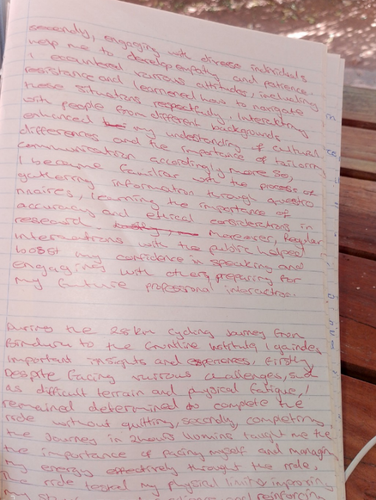 secondly, engaging with diverse individuals
help me to develop empathy and patience.
I encountered various attitudes, including
resistance and learnered how to navigate
these situations respectfully. Interacting
with people from different backgrounds
enhanced my understanding of cultural
differences and the importance of tailoring
communication accordingly. More so,
I became familiar with the process of
gathering information through questio
nnaires, learning the importance of
accuracy and ethical considerations in
research. Moreover, Regular
Interactions with the public helped
boost my confidence in speaking and
engaging with others, preparing for
my future professional interaction.
During the 28km cycling journey from
Bindura to the I gained
important insights and experiences, firstly
Despite facing various challenges, such
as difficult terrain and physical fatigue, I
remained determined to complete the
ride without quitting, secondly, completing
the Journey in 2hours taught me the
the importance of pacing myself and managing
my energy effectively throught the ride,
the ride tested my physical limits, improving
my and